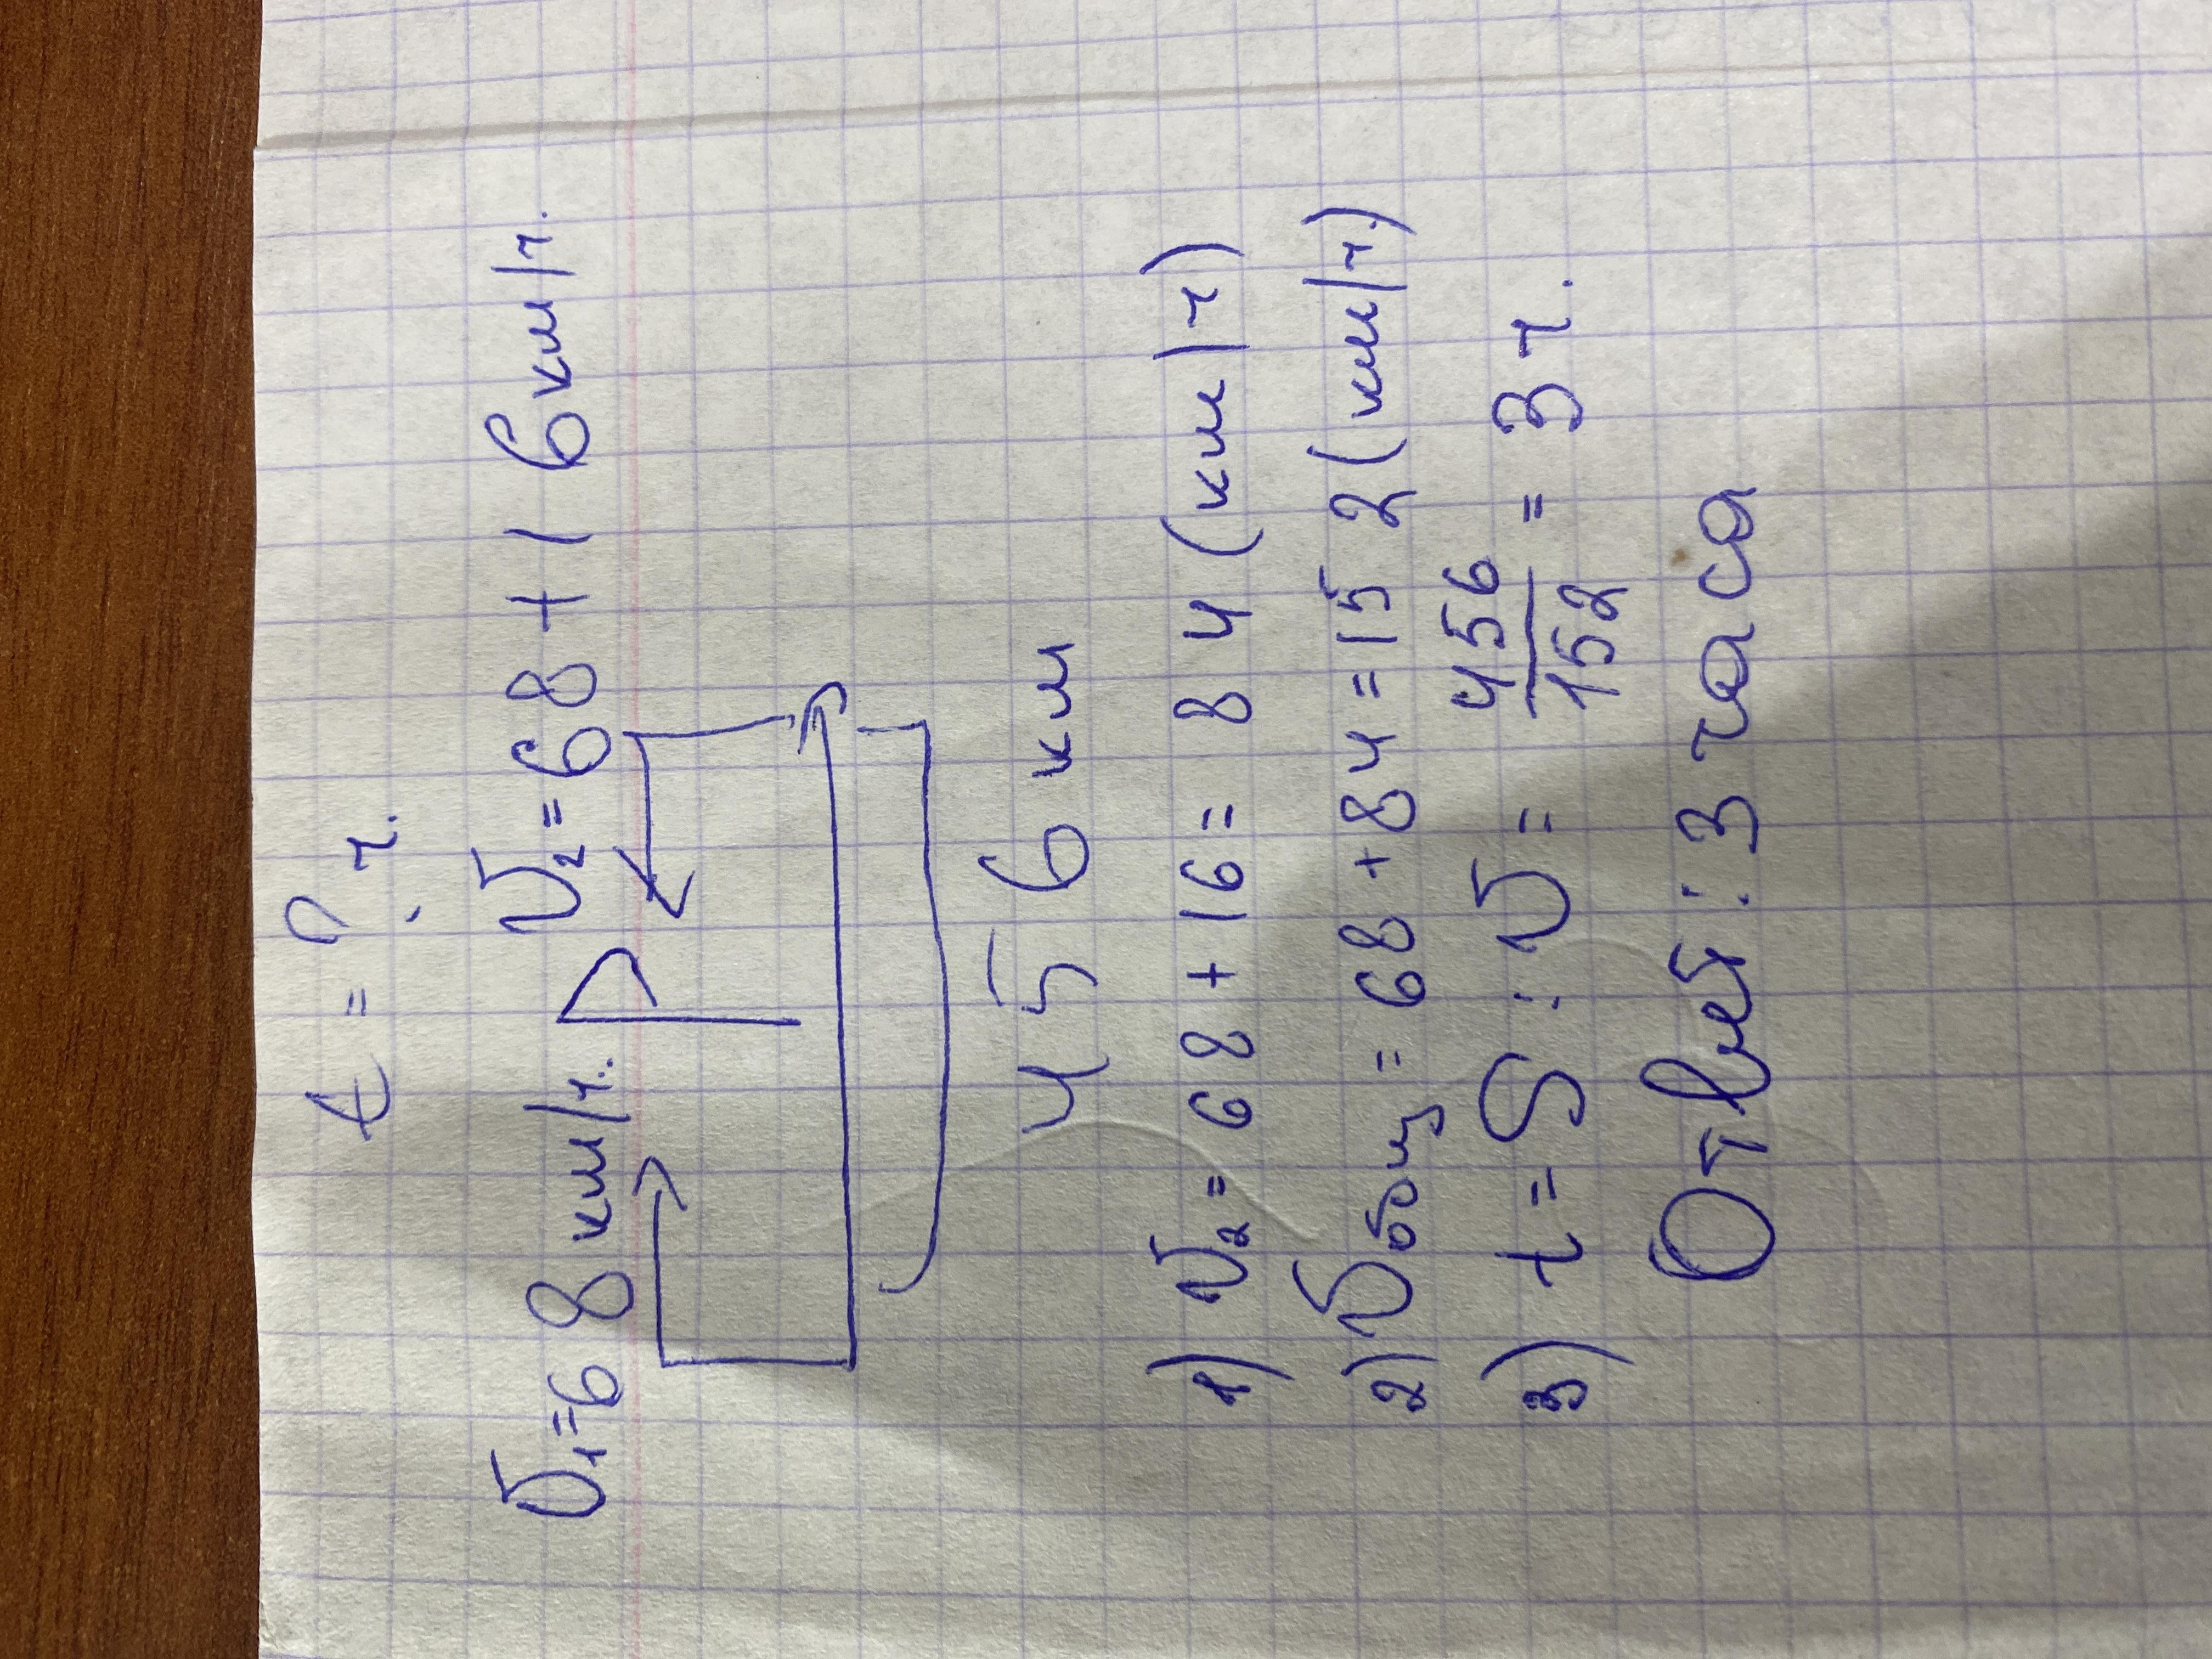 t = ? ч.
v₁=68км/ч. v₂=68+16км/ч.
456км
1) v₂=68+16=84(км/ч)
2) vобщ=68+84=152(км/ч.)
3) t=S:v=456/152=3ч.
Ответ:3 часа